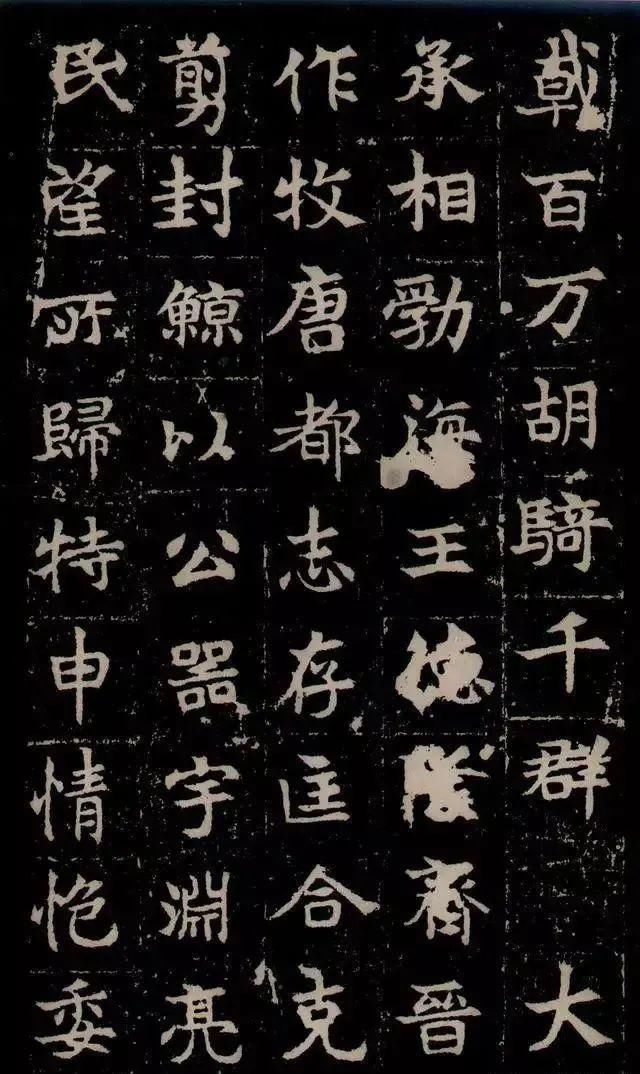 戟百万胡騎千群 大
承相勃海王德隆齊晉
作牧唐都志存匡合克
剪封鯨以公器宇淵亮
民望所歸特申情㧪委